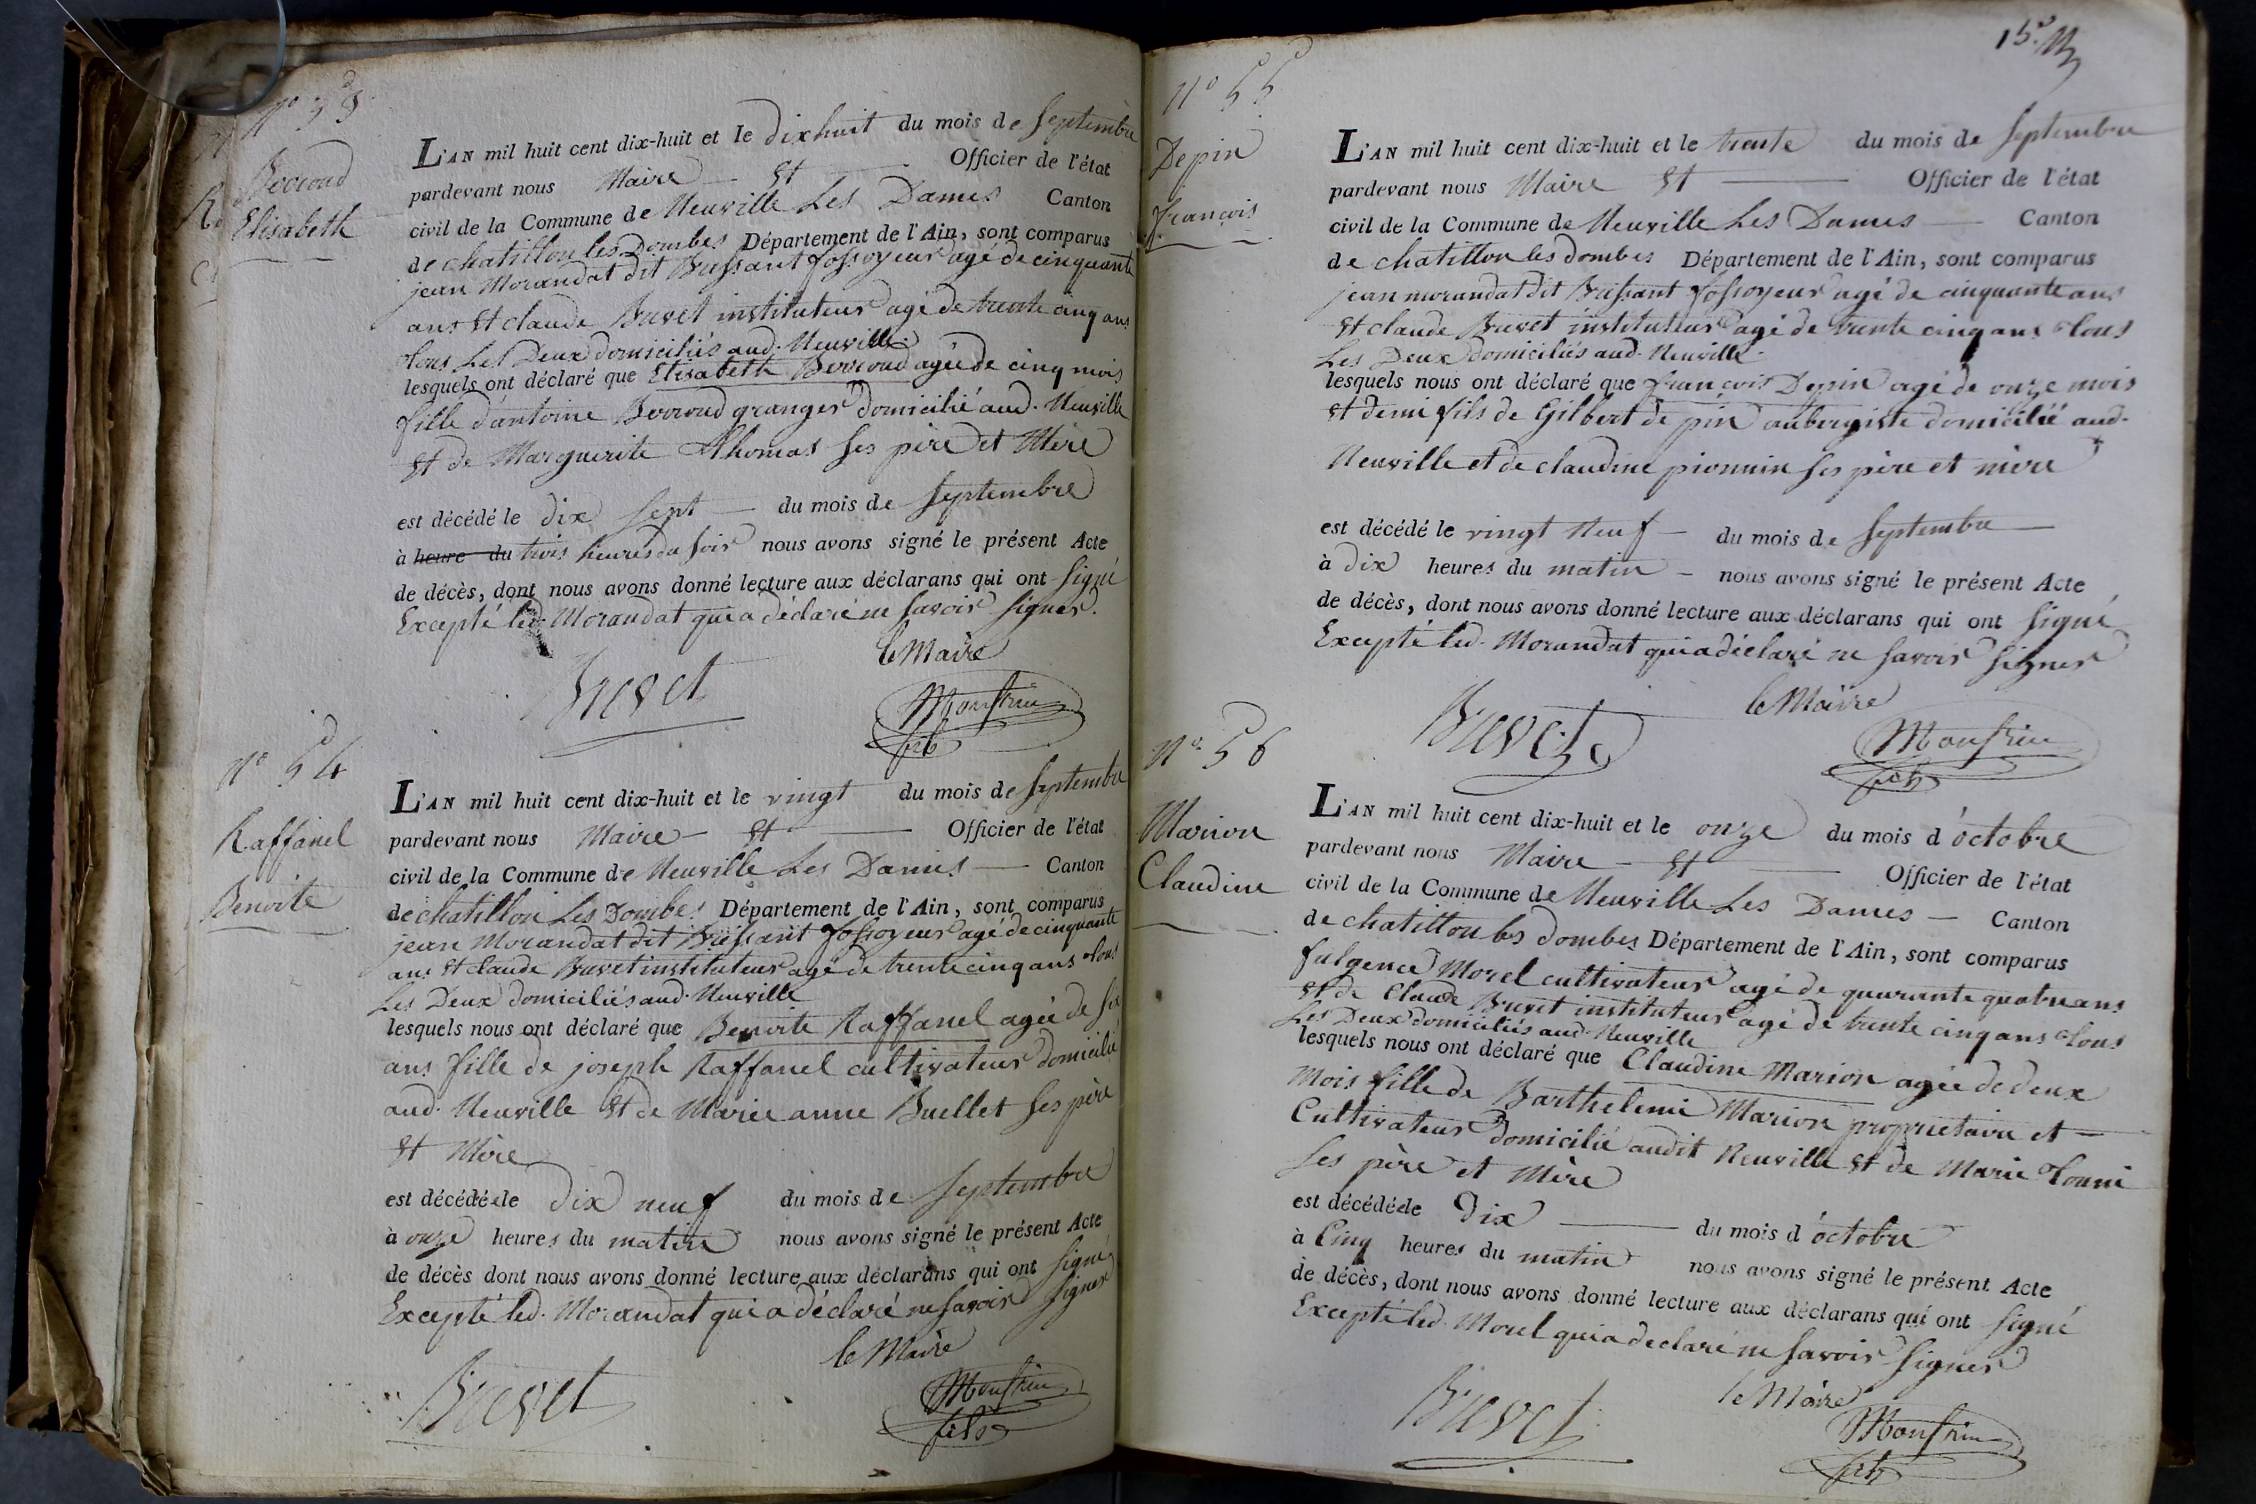 N.º 53
Bocroud
Elisabeth
L'AN mil huit cent dix-huit et le dix huit du mois de Septembre
pardevant nous Maire Et Officier de l'état
civil de la Commune de Neuville Les Dames Canton
de chatillon les Dombes Département de l'Ain, sont comparus
jean Morandat dit Bressant fossoyeur agé de cinquante
ans Et claude Buvet instituteur agé de trente cinq ans
tous Les Deux domiciliés aud. Neuville
lesquels ont déclaré que Elisabeth agée de cinq mois
fille d'antoine granger domicilié aud. Neuville
et de Marguerite Thomas Ses père et Mère
est décédé le dix Sept du mois de Septembre
à heure du trois heures du soir nous avons signé le présent Acte
de décès, dont nous avons donné lecture aux déclarans qui ont Signé
Excepté led. Morandat qui a déclaré ne Savoir Signer.
le Maire
Buvet
Monfrin
fils
N.º 54
Raffanel
Benoite
L'AN mil huit cent dix-huit et le vingt du mois de Septembre
pardevant nous Maire Et Officier de l'état
civil de la Commune de Neuville Les Dames Canton
de chatillon Les Dombes Département de l'Ain, sont comparus
jean Morandat dit Bressant fossoyeur agé de cinquante
ans Et claude Buvet instituteur agé de trente cinq ans tous
Les Deux domiciliés aud. Neuville
lesquels nous ont déclaré que Benoite Raffanel agée de Six
ans fille de joseph Raffanel cultivateur domicilié
aud. Neuville Et de Marie anne Buellet Ses père
Et Mère
est décédée le dix neuf du mois de Septembre
à onze heures du matin nous avons signé le présent Acte
de décès dont nous avons donné lecture aux déclarans qui ont Signé
Excepté led. Morandat qui a déclaré ne Savoir Signer
le Maire
Buvet
Monfrin
fils
15.
N.º 55
Depin
françois
L'AN mil huit cent dix-huit et le trente du mois de Septembre
pardevant nous Maire Et Officier de l'état
civil de la Commune de Neuville Les Dames Canton
de chatillon les dombes Département de l'Ain, sont comparus
jean morandat dit Bressant fossoyeur agé de cinquante ans
Et claude Buvet instituteur agé de trente cinq ans tous
Les Deux domiciliés aud. Neuville
lesquels nous ont déclaré que françois Depin agé de onze mois
Et demi fils de Gilbert de pin aubergiste domicilié aud.
Neuville et de claudine pionnin Ses père et mère
est décédé le vingt Neuf du mois de Septembre
à dix heures du matin nous avons signé le présent Acte
de décès, dont nous avons donné lecture aux déclarans qui ont Signé
Excepté led. Morandat qui a déclaré ne Savoir Signer
le Maire
Buvet
Monfrin
fils
N.º 56
Marion
Claudine
L'AN mil huit cent dix-huit et le onze du mois d'octobre
pardevant nous Maire Et Officier de l'état
civil de la Commune de Neuville Les Dames Canton
de chatillon les dombes Département de l'Ain, sont comparus
fulgence Morel cultivateur agé de quarante quatre ans
Et de Claude Buvet instituteur agé de trente cinq ans tous
Les Deux domiciliés aud. Neuville
lesquels nous ont déclaré que Claudine Marion agée de deux
Mois fille de Barthelemi Marion proprietaire et
Cultivateur domicilié audit Neuville Et de Marie
Ses père et Mère
est décédée le Dix du mois d'octobre
à Cinq heures du matin nous avons signé le présent Acte
de décès, dont nous avons donné lecture aux déclarans qui ont Signé
Excepté led. Morel qui a declaré ne Savoir Signer
le Maire
Buvet
Monfrin
fils